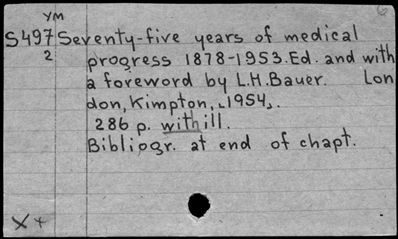 YM
S497 Seventy-five years of medical
2 progress 1878-1953. Ed. and with
a foreword by L.H. Bauer. Lon
don, Kimpton, [1954].
286 p. with ill.
Bibliogr. at end of chapt.
X+